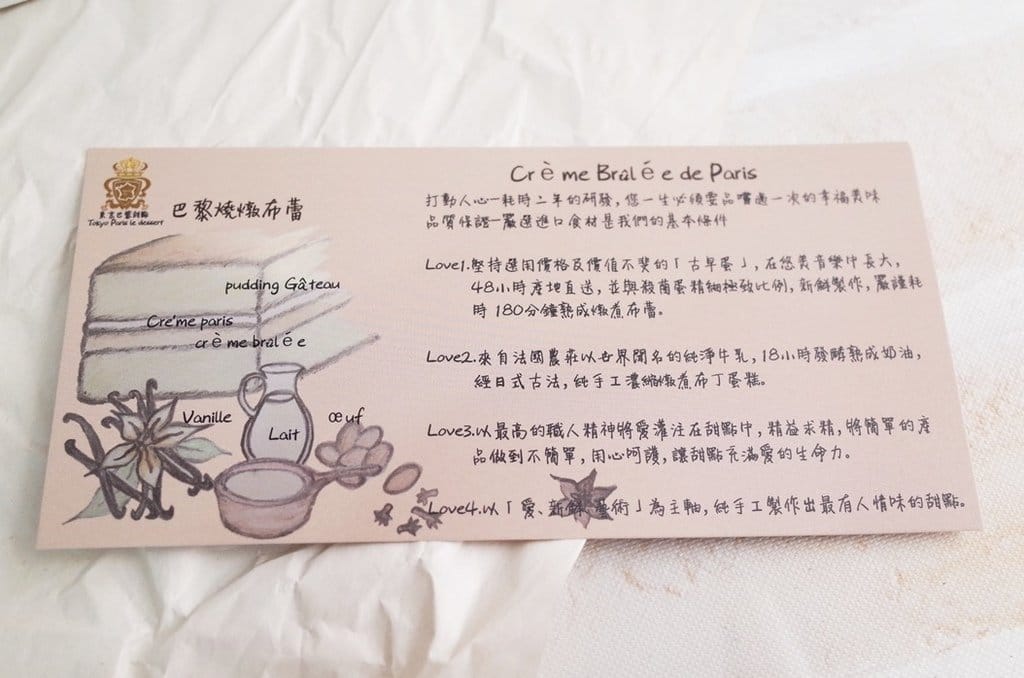 東京巴黎甜點
Tokyo Paris le dessert
巴黎燒燉布蕾
pudding Gâteau
Cre'me paris
crème brulée
Vanille
Lait
œuf
Crème Brûlée de Paris
打動人心一耗時二年的研發,您一生必須要品嚐過一次的幸福美味
品質保證一嚴選進口食材是我們的基本條件
Love1.堅持選用價格及價值不斐的「古早蛋」,在悠美音樂中長大,
48小時產地直送,並與殺菌蛋精細極致比例,新鮮製作,嚴謹耗
時180分鐘熟成燉煮布蕾。
Love2.來自法國農莊以世界聞名的純淨牛乳,18小時發酵熟成奶油,
經日式古法,純手工濃縮燉煮布丁蛋糕。
Love3.以最高的職人精神將愛灌注在甜點中,精益求精,將簡單的產
品做到不簡單,用心呵護,讓甜點充滿愛的生命力。
Love4.以「愛、新鮮、藝術」為主軸,純手工製作出最有人情味的甜點。